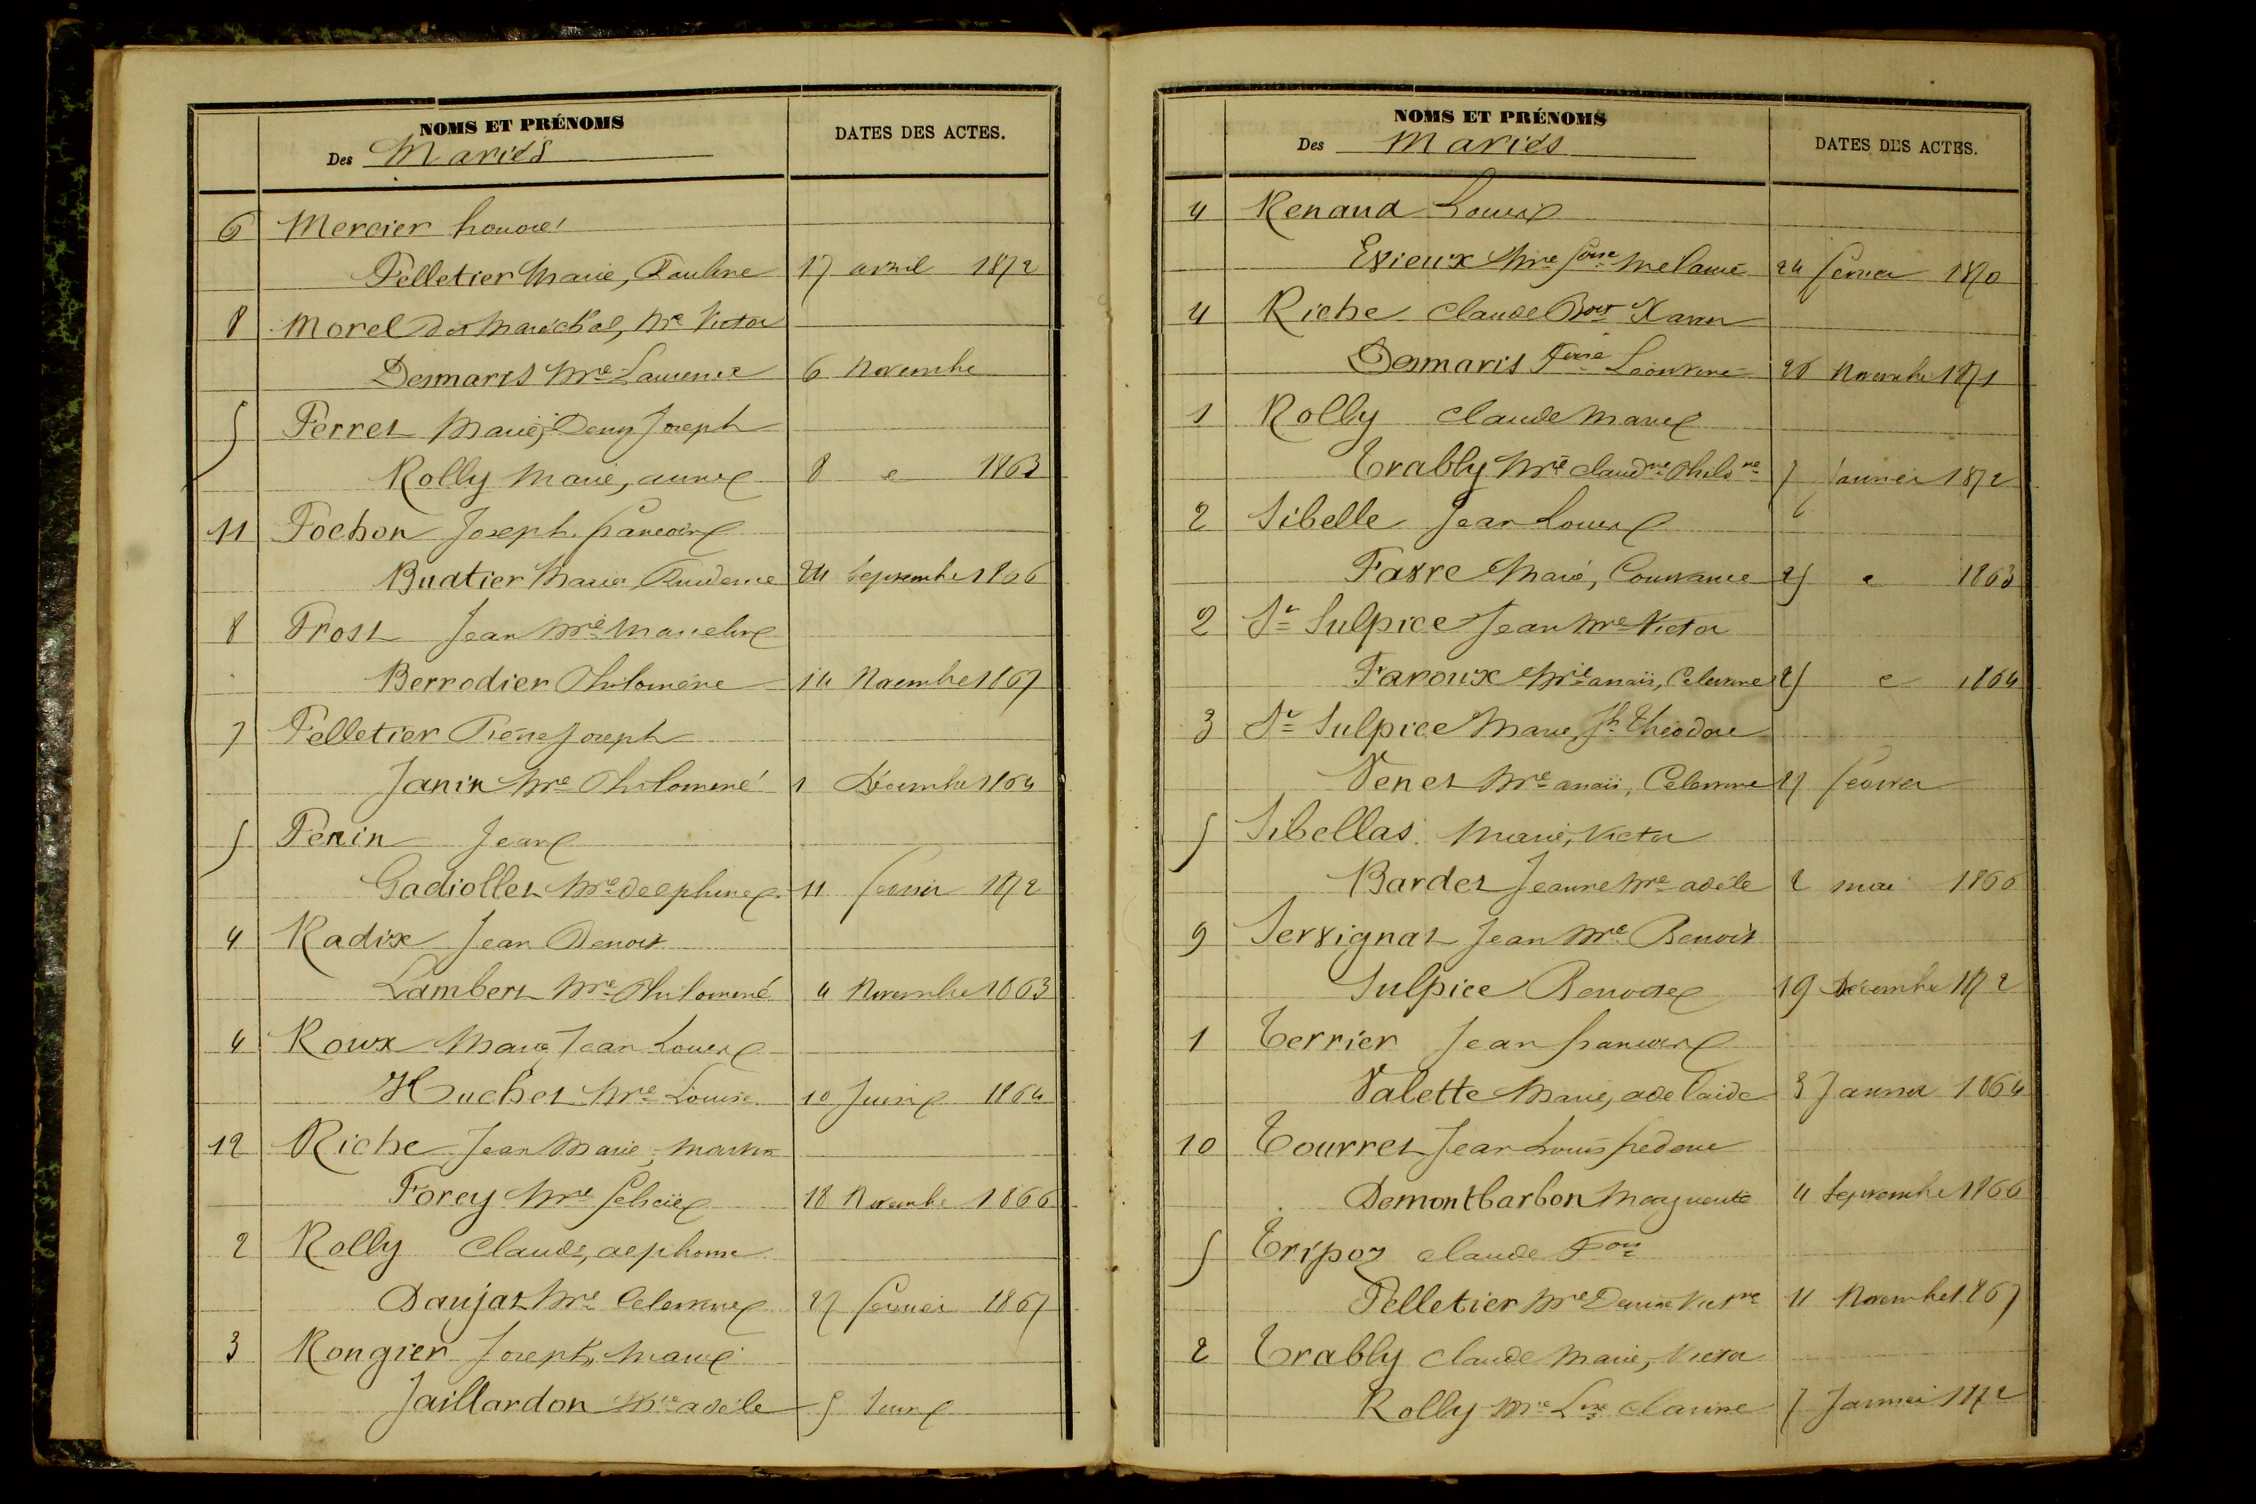 NOMS ET PRÉNOMS
Des Mariés
DATES DES ACTES.
6 Mercier honoré
Pelletier Marie, Pauline 17 avril 1872
8 Morel dit Maréchal, Mie Victor
Desmaris Mie Laurence 6 Novembre
5 Perret Marie, Denis Joseph
Rolly Marie, anne 8 e 1863
11 Pochon Joseph, francois
Budtier Marie Prudence 24 Septembre 1866
8 Prost Jean Mie Marcelin
Berrodier Philomène 14 Novembre 1867
7 Pelletier Pierre Joseph
Janin Mie Philomène 1 Décembre 1864
5 Penin Jean
Gadiollet Mie delphine 11 fevrier 1872
4 Radix Jean Benoit
Lambert Mie Philomené 4 Novembre 1863
4 Roux Marie Jean Louis
Huchet Mie Louise 10 Juin 1864
12 Riche Jean Marie, Martin
Forey Mie felicie 18 Novembre 1866
2 Rolly Claude, alphonse
Daujat Mie Celestine 27 fevrier 1867
3 Rongier Joseph, Marie
Jaillardon Mie adèle 5 Juin
NOMS ET PRÉNOMS
Des Mariés
DATES DES ACTES.
4 Renaud Louis
Esieux Mie Melanie 24 fevrier 1870
4 Riche Claude Xavier
Desmaris Léontine 28 Novembre 1871
1 Rolly Claude Marie
Trably Mie Claudne Philone 7 Janvier 1872
2 Sibelle Jean Louis
Favre Marie, Constance 25 e 1863
2 St Sulpice Jean Mie Victor
Faroux Mie anaïs, Celestine 25 e 1864
3 St Sulpice Marie, Jh Théodore
Venet Mie anaïs, Celestine 27 fevrier
5 Sibellas Marie, Victor
Bardet Jeanne Mie adèle 2 mai 1866
9 Servignat Jean Mie Benoit
Sulpice Benoite 19 Décembre 1872
1 Terrier Jean francois
Valette Marie, adelaide 3 Janvier 1864
10 Tourret Jean Louis
Demontbarbon Marguerite 4 Septembre 1866
5 Tripoz Claude Fois
Pelletier Mie Denise Victne 11 Novembre 1867
2 Trably Claude Marie, Victor
Rolly Mie Lse Clarine 7 Janvier 1872